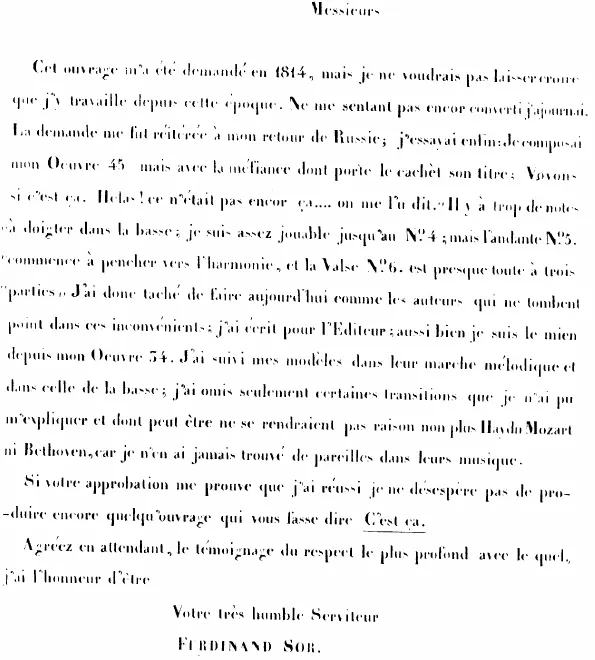 Messieurs
Cet ouvrage m'a été demandé en 1814, mais je ne voudrais pas laisser croire
que j'y travaille depuis cette époque. Ne me sentant pas encor converti j'ajournai.
La demande me fut réitérée à mon retour de Russie; j'essayai enfin: Je composai
mon Oeuvre 45 mais avec la méfiance dont porte le cachèt son titre: Voyons
si c'est ça. Helas! ce n'était pas encor ça.... on me l'u dit. "Il y à trop de notes
"à doigter dans la basse; je suis assez jouable jusqu'au Nº 4; mais l'andante Nº 5.
"commence à pencher vers l'harmonie, et la Valse Nº 6. est presque toute à trois
"parties" J'ai donc taché de faire aujourd'hui comme les auteurs qui ne tombent
point dans ces inconvénients; j'ai écrit pour l'Editeur; aussi bien je suis le mien
depuis mon Oeuvre 34. J'ai suivi mes modèles dans leur marche mélodique et
dans celle de la basse; j'ai omis seulement certaines transitions que je n'ai pu
m'expliquer et dont peut être ne se rendraient pas raison non plus Haydn Mozart
ni Bethoven, car je n'en ai jamais trouvé de pareilles dans leurs musique.
Si votre approbation me prouve que j'ai réussi je ne désespère pas de pro-
-duire encore quelqu'ouvrage qui vous fasse dire C'est ça.
Agréez en attendant, le témoignage du respect le plus profond avec le quel,
j'ai l'honneur d'être
Votre très humble Serviteur
FERDINAND SOR.